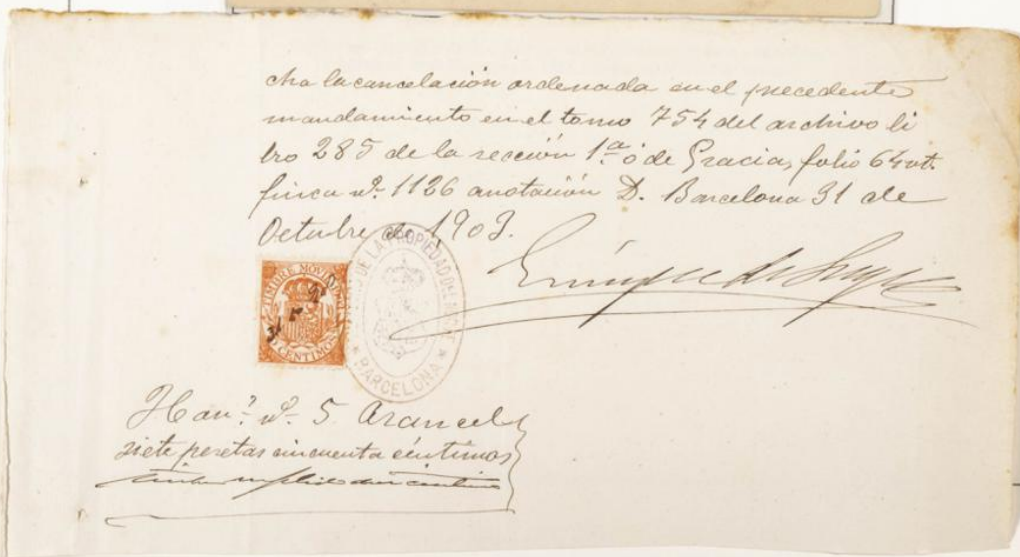 cha la cancelación ordenada en el precedente
mandamiento en el tomo 754 del archivo li
bro 285 de la sección 1ª ó de Gracia, folio 64 vt.
finca nº 1126 anotación D. Barcelona 31 de
Octubre de 1903.
Enrique de
TIMBRE MOVIL
CENTIMOS
DE LA PROPIEDAD DEL NORTE
* BARCELONA *
Hon.s nº 5 Arancel
siete pesetas cincuenta céntimos